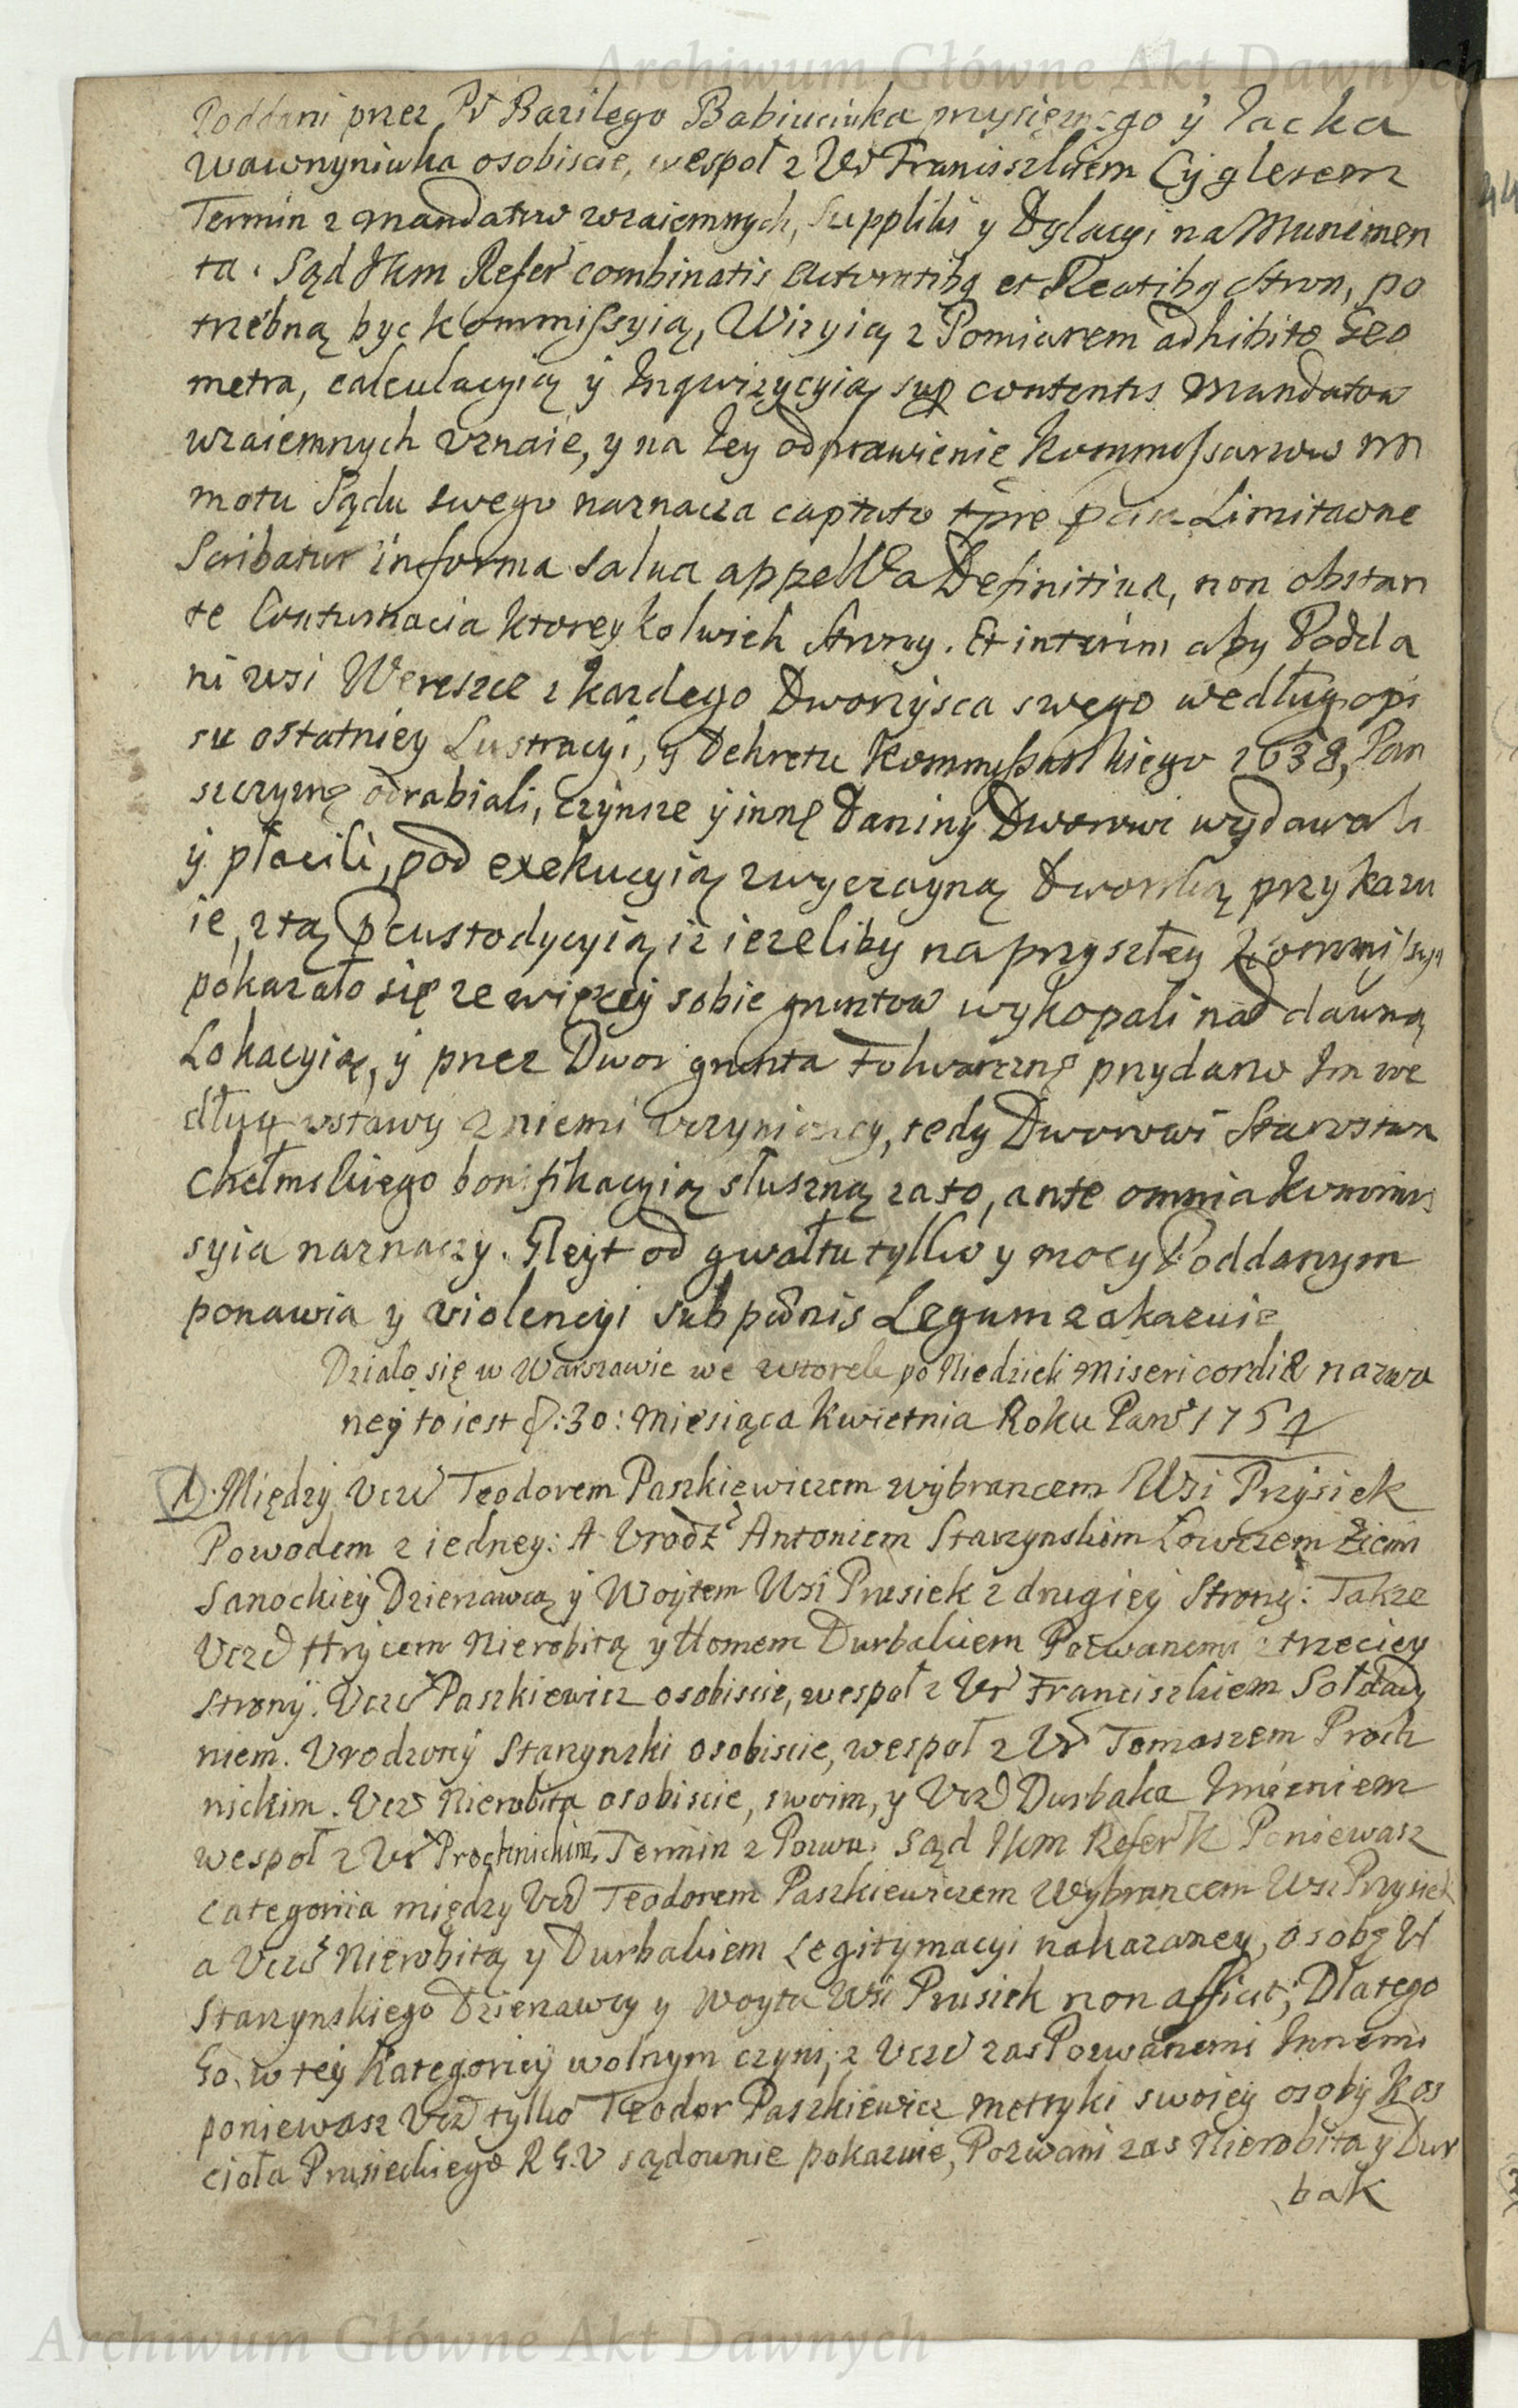 Archiwum Główne Akt Dawnych
Poddani przez Pr Bazilego Babiuciuka przysięznego ÿ Jacka
Wawrzyniuka osobiscie, wespoł z Ur Franciszkiem Cÿglerem
Termin z Mandatow wzaiemnych, Suppliki y Dylacyi na Munimen
ta. Sąd JKM Refer combinatis Actoratibq et Reatibq Stron, po
trzebną byc Kommissyią, Wizyią z Pomiarem adhibito Geo
metra, calculacyią ÿ Inqwizycyią sup contentis Mandatow
wzaiemnych uznaie, y na Jey odprawienie Kommissarzow
motu Sądu swego naznacza captato tpre Limitaone
Scribatur in forma salva appellna Definitiva, non obstan
te Contumacia ktoreykolwiek Strony. Et interim aby Podda
ni wsi Wereszce z kazdego Dworzysca swego według opi
su ostatniey Lustracyi, y Dekretu Kommyssarskiego 1638, Pan
szczyznę odrabiali, czynsze ÿ innę Daninÿ Dworowi wydawali
ÿ płacili, pod exekucyią zwyczayną Dworską przykazu
ie, z tą pcustodycyią iz iezeliby na przyszłey Kommissyi
pokazało się ze więcey sobie gruntow wykopali nad dawną
Lokacyią, ÿ przez Dwor grunta Folwarcznę przydano Im we
dług ustawÿ z niemi uczynioney, tedy Dworowi Starostwa
Chełmskiego bonifikacyią słuszną za to, ante omnia Kommis
syia naznaczy. Gleyt od gwałtu tylko y mocy Poddanym
ponawia y violencyi sub pænis Legum zakazuie
Działo się w Warszawie we wtorek po Niedzieli Misericordiæ nazwa
neÿ to iest D: 30: Miesiąca Kwietnia Roku Pans 1754
1. Międzÿ Ucz Teodorem Paszkiewiczem wÿbrancem Wsi Przÿsiek
Powodem z iedney: A Urodz Antoniem Starzynskim Łowczem Ziemi
Sanockieÿ Dzierzawcą ÿ Woÿtem Wsi Prusiek z drugiey Stronÿ: Takze
Ucz Hrycem Nierobitą y Homem Durbakiem Pozwanemi z trzeciey
Stronÿ. Ucz Paszkiewicz osobiscie, wespoł z Ur Franciszkiem Sołdady
niem. Urodzonÿ Starzynski osobiscie, wespoł z Ur Tomaszem Proch
nickim. Ucz Nierobita osobiscie, swoim, y Ucz Durbaka Imieniem
wespoł z Ur Prochnickim, Termin z Pozwu. Sąd JKM Refer K Poniewasz
categoria międzÿ Ucz Teodorem Paszkiewiczem Wybrancem Wsi Przysiek
a Ucz Nierobitą y Durbakiem Legitymacyi nakazaney, osobę Ur
Starzynskiego Dzierzawcy y Woyta Wsi Prusiek non afficit; Dlatego
Go w teÿ Kategorieÿ wolnym czyni; z Ucz zas Pozwanemi Innemi
poniewasz Ucz tylko Teodor Paszkiewicz metryki swoieÿ osobÿ Kos
cioła Prusieckiego R G. U sądownie pokazuie, Pozwani zas Nierobita y Dur
bak
Archiwum Główne Akt Dawnych